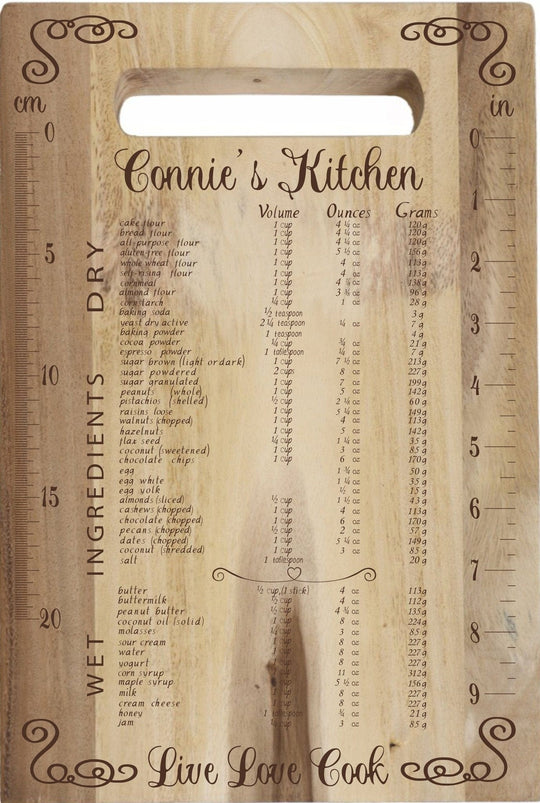 cm
in
Connie's Kitchen
Volume Ounces Grams
cake flour 1 cup 4 ¼ oz 120 g
bread flour 1 cup 4 ¼ oz 120 g
all-purpose flour 1 cup 4 ¼ oz 120 g
gluten-free flour 1 cup 5 ½ oz 156 g
whole wheat flour 1 cup 4 oz 113 g
self-rising flour 1 cup 4 oz 113 g
cornmeal 1 cup 138 g
almond flour 1 cup 96 g
cornstarch ¼ cup 1 oz 28 g
baking soda ½ teaspoon 3 g
yeast dry active 2 ¼ teaspoon ¼ oz 7 g
baking powder 1 teaspoon 4 g
cocoa powder ¼ cup ¾ oz 21 g
espresso powder 1 tablespoon ¼ oz 7 g
sugar brown (light or dark) 1 cup 7 ½ oz 213 g
sugar powdered 2 cups 8 oz 227 g
sugar granulated 1 cup 7 oz 199 g
peanuts (whole) 1 cup 5 oz 142 g
pistachios (shelled) ½ cup 2 oz 60 g
raisins loose 1 cup 5 ¼ oz 149 g
walnuts (chopped) 1 cup 4 oz 113 g
hazelnuts 1 cup 5 oz 142 g
flax seed ¼ cup 1 ¼ oz 35 g
coconut (sweetened) 1 cup 3 oz 85 g
chocolate chips 1 cup 6 oz 170 g
egg 1 ¾ oz 50 g
egg white 1 ¼ oz 35 g
egg yolk ½ oz 15 g
almonds (sliced) ½ cup 1 ½ oz 43 g
cashews (chopped) 1 cup 4 oz 113 g
chocolate (chopped) 1 cup 6 oz 170 g
pecans (chopped) ½ cup 2 oz 57 g
dates (chopped) 1 cup 5 ¼ oz 149 g
coconut (shredded) 1 cup 3 oz 85 g
salt 1 tablespoon 20 g
butter ½ cup (1 stick) 4 oz 113 g
buttermilk ½ cup 4 oz 112 g
peanut butter ½ cup 4 ¾ oz 135 g
coconut oil (solid) 1 cup 8 oz 224 g
molasses ¼ cup 3 oz 85 g
sour cream 1 cup 8 oz 227 g
water 1 cup 8 oz 227 g
yogurt 1 cup 8 oz 227 g
corn syrup 1 cup 11 oz 312 g
maple syrup ½ cup 5 ½ oz 156 g
milk 1 cup 8 oz 227 g
cream cheese 1 cup 8 oz 227 g
honey 1 tablespoon ¾ oz 21 g
jam ¼ cup 3 oz 85 g
WET INGREDIENTS DRY
0
5
10
15
20
0
1
2
3
4
5
6
7
8
9
Live Love Cook